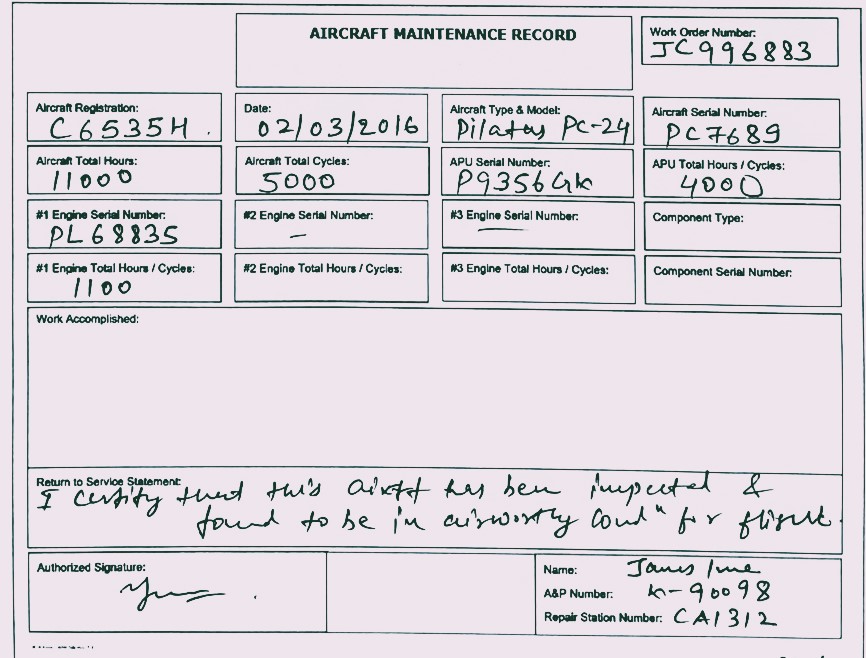 AIRCRAFT MAINTENANCE RECORD
Work Order Number:
JC996883
Aircraft Registration:
C6535H
Date:
02/03/2016
Aircraft Type & Model:
Pilatus PC-24
Aircraft Serial Number:
PC7689
Aircraft Total Hours:
11000
Aircraft Total Cycles:
5000
APU Serial Number:
P9356GK
APU Total Hours / Cycles:
4000
#1 Engine Serial Number:
PL68835
#2 Engine Serial Number:
—
#3 Engine Serial Number:
—
Component Type:
#1 Engine Total Hours / Cycles:
1100
#2 Engine Total Hours / Cycles:
#3 Engine Total Hours / Cycles:
Component Serial Number:
Work Accomplished:
Return to Service Statement:
I certify that this aircft has been inspected &
found to be in airworthy Condⁿ for flight.
Authorized Signature:
Name: James
A&P Number: K-90098
Repair Station Number: CA1312